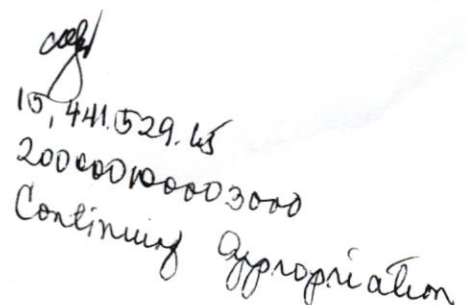 15,441.529.45
200000100003000
Continuing Appropriation